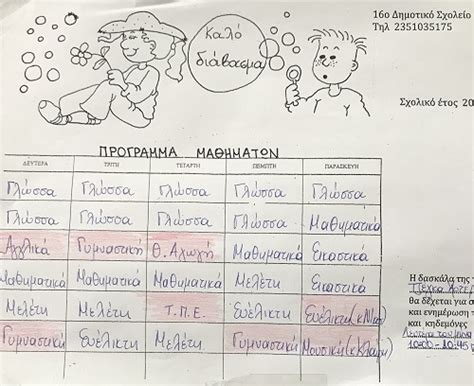 Καλό
διάβασμα
16ο Δημοτικό Σχολείο
Τηλ 2351035175
Σχολικό έτος 20
ΠΡΟΓΡΑΜΜΑ ΜΑΘΗΜΑΤΩΝ
ΔΕΥΤΕΡΑ ΤΡΙΤΗ ΤΕΤΑΡΤΗ ΠΕΜΠΤΗ ΠΑΡΑΣΚΕΥΗ
Γλώσσα Γλώσσα Γλώσσα Γλώσσα Γλώσσα
Γλώσσα Γλώσσα Γλώσσα Γλώσσα Μαθηματικά
Αγγλικά Γυμναστική Θ. Αγωγή Μαθηματικά Εικαστικά
Μαθηματικά Μαθηματικά Μαθηματικά Μελέτη Εικαστικά
Μελέτη Μελέτη Τ.Π.Ε. Ευέλικτη
Γυμναστική Ευέλικτη Μελέτη Γυμναστική Μουσική
Η δασκάλα της
θα δέχεται για
και ενημέρωση
και κηδεμόνες
10:00 - 10:45